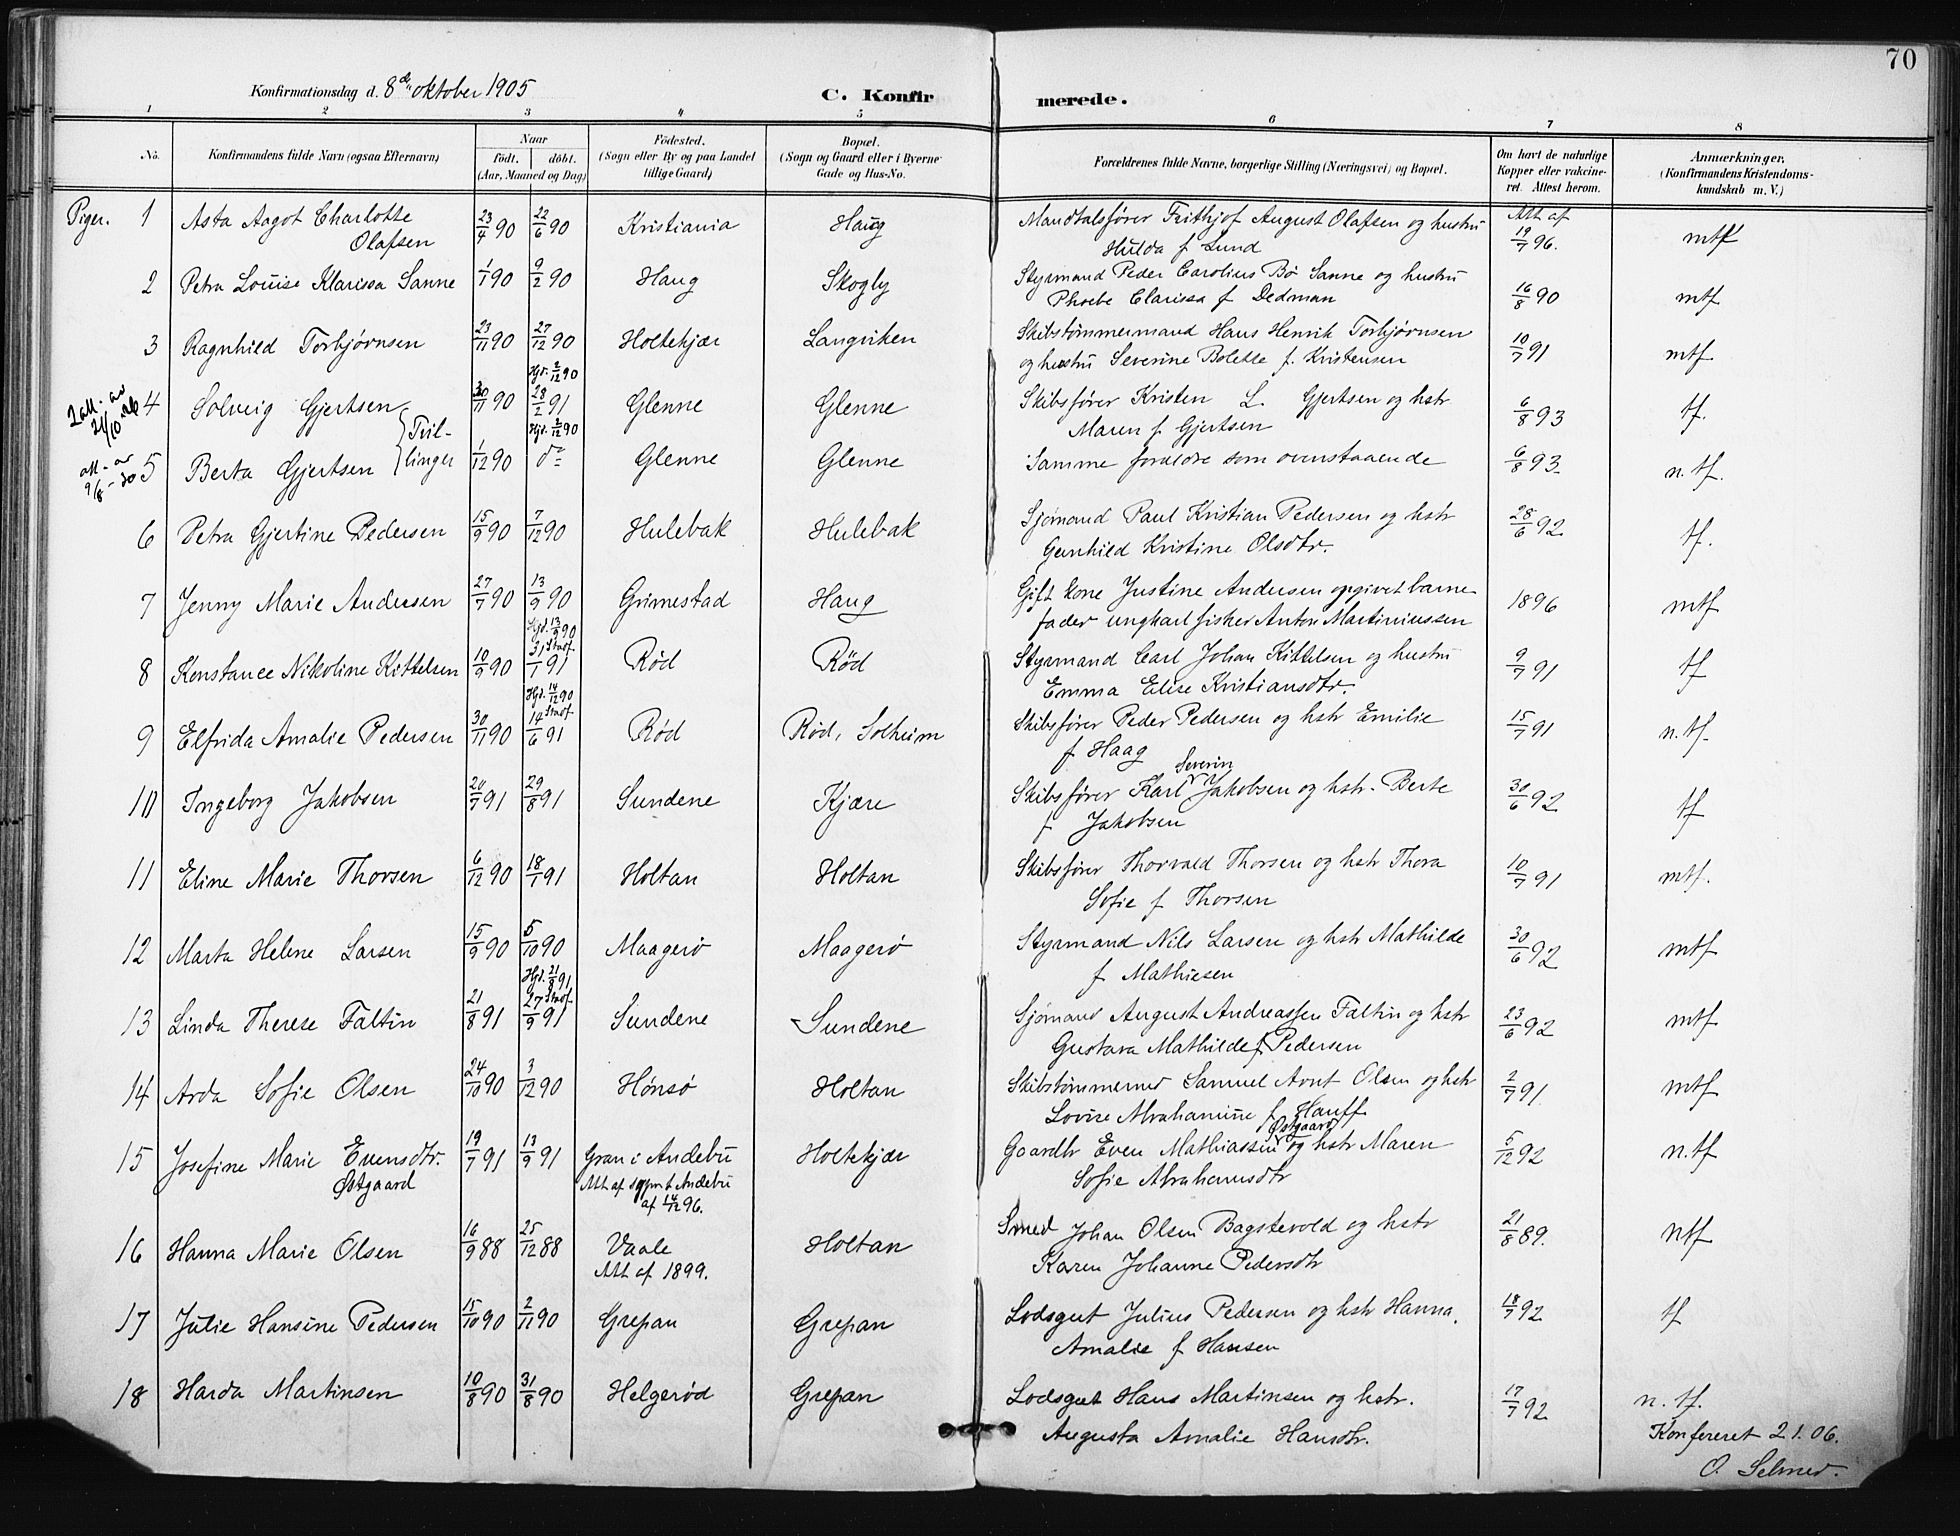 70
Konfirmationsdag d. 8de oktober 1905
C. Konfirmerede.
1 2 3 4 5 6 7 8
No.
Konfirmandens fulde Navn (ogsaa Efternavn)
Naar
født. døbt.
(Aar, Maaned og Dag)
Fødested.
(Sogn eller By og paa Landet
tillige Gaard)
Bopæl.
(Sogn og Gaard eller i Byerne
Gade og Hus-No.
Forældrenes fulde Navne, borgerlige Stilling (Næringsvei) og Bopæl.
Om havt de naturlige
Kopper eller vakcine-
ret. Attest herom.
Anmærkninger.
(Konfirmandens Kristendoms-
kundskab m. V.)
Piger. 1 Asta Aagot Charlotte Olafsen 23/4 90 22/6 90 Kristiania Haug Mandtalsfører Frithjof August Olafsen og hustru
Hulda f Lund Att af 19/7 96. mtf
2 Petra Louise Klarissa Sanne 1/1 90 9/2 90 Haug Skogly Styrmand Peder Carolius Bø Sanne og hustru
Phoebe Clarissa f Dedman 16/8 90 mtf
3 Ragnhild Torbjørnsen 23/11 90 27/12 90 Holtekjær Langviken Skibstømmermand Hans Henrik Torbjørnsen
og hustru Severine Bolette f. Kristensen 10/7 91 mtf
2 att. av 21/10 26 4 Solveig Gjertsen 30/11 90 Hjd. 2/12 90 28/2 91 Glenne Glenne Skibsfører Kristen L. Gjertsen og hstr
Maren f Gjertsen 6/8 93 tf.
Tvil-
linger
att - av 9/8 - 20 5 Berta Gjertsen 1/12 90 Hjd. 2/12 90 do Glenne Glenne Samme forældre som ovenstaaende 6/8 93 n.tf.
6 Petra Gjertine Pedersen 15/9 90 7/12 90 Hulebak Hulebak Sjømand Paul Kristian Pedersen og hstr
Gunhild Kristine Olsdtr. 28/6 92 tf.
7 Jenny Marie Andersen 27/7 90 13/9 90 Grimestad Haug Gift kone Justine Andersen opgivet barne-
fader ungkarl fisker Anton Martiniussen 1896 mtf
8 Konstance Nikoline Kittelsen 10/9 90 Hjd. 13/9 90 31/1 91 Stadf. Rød Rød Styrmand Carl Johan Kittelsen og hustru
Emma Elise Kristiansdtr. 9/7 91 tf
9 Elfrida Amalie Pedersen 30/11 90 Hjd. 14/12 90 14/6 91 Stadf. Rød Rød, Solheim Skibsfører Peder Pedersen og hstr Emilie
f Haag 15/7 91 n.tf.
10 Ingeborg Jakobsen 20/7 91 29/8 91 Sundene Kjære Skibsfører Karl Severin Jakobsen og hstr. Berte
f Jakobsen 30/6 92 tf
11 Eline Marie Thorsen 6/12 90 18/1 91 Holtan Holtan Skibsfører Thorvald Thorsen og hstr Thora
Sofie f Thorsen 10/7 91 mtf.
12 Marta Helene Larsen 15/9 90 5/10 90 Maagerø Maagerø Styrmand Nils Larsen og hstr Mathilde
f Mathiesen 30/6 92 mtf
13 Linda Therese Faltin 21/8 91 Hjd. 21/8 91 27/9 91 Stadf. Sundene Sundene Sjømand August Andreassen Faltin og hstr
Gustava Mathilde f Pedersen 23/6 92 mtf
14 Arda Sofie Olsen 24/10 90 3/12 90 Hønsø Holtan Skibstømmermd Samuel Arnt Olsen og hstr
Lovise Abrahamine f Hauff 2/7 91 mtf
15 Josefine Marie Evensdtr. Østgaard 19/7 91 13/9 91 Gran i Andebu Holtekjær Gaardbr Even Mathiassen Østgaard og hstr Maren
Att af sogneprt Andebu
af 14/12 96. Sofie Abrahamsdtr 5/12 92 n.tf
16 Hanna Marie Olsen 16/9 88 25/12 88 Vaale Holtan Smed Johan Olsen Bagstevold og hstr
Att af 1899. Karen Johanne Pedersdtr 21/8 89. ntf
17 Julie Hansine Pedersen 15/10 90 2/11 90 Grepan Grepan Lodsgut Julius Pedersen og hstr Hanna
Amalie f Hansen 18/7 92 tf
18 Harda Martinsen 10/8 90 31/8 90 Helgerød Grepan Lodsgut Hans Martinsen og hstr.
Augusta Amalie Hansdtr. 17/7 92 n.tf.
Konfereret 2.1.06.
O. Selmer.